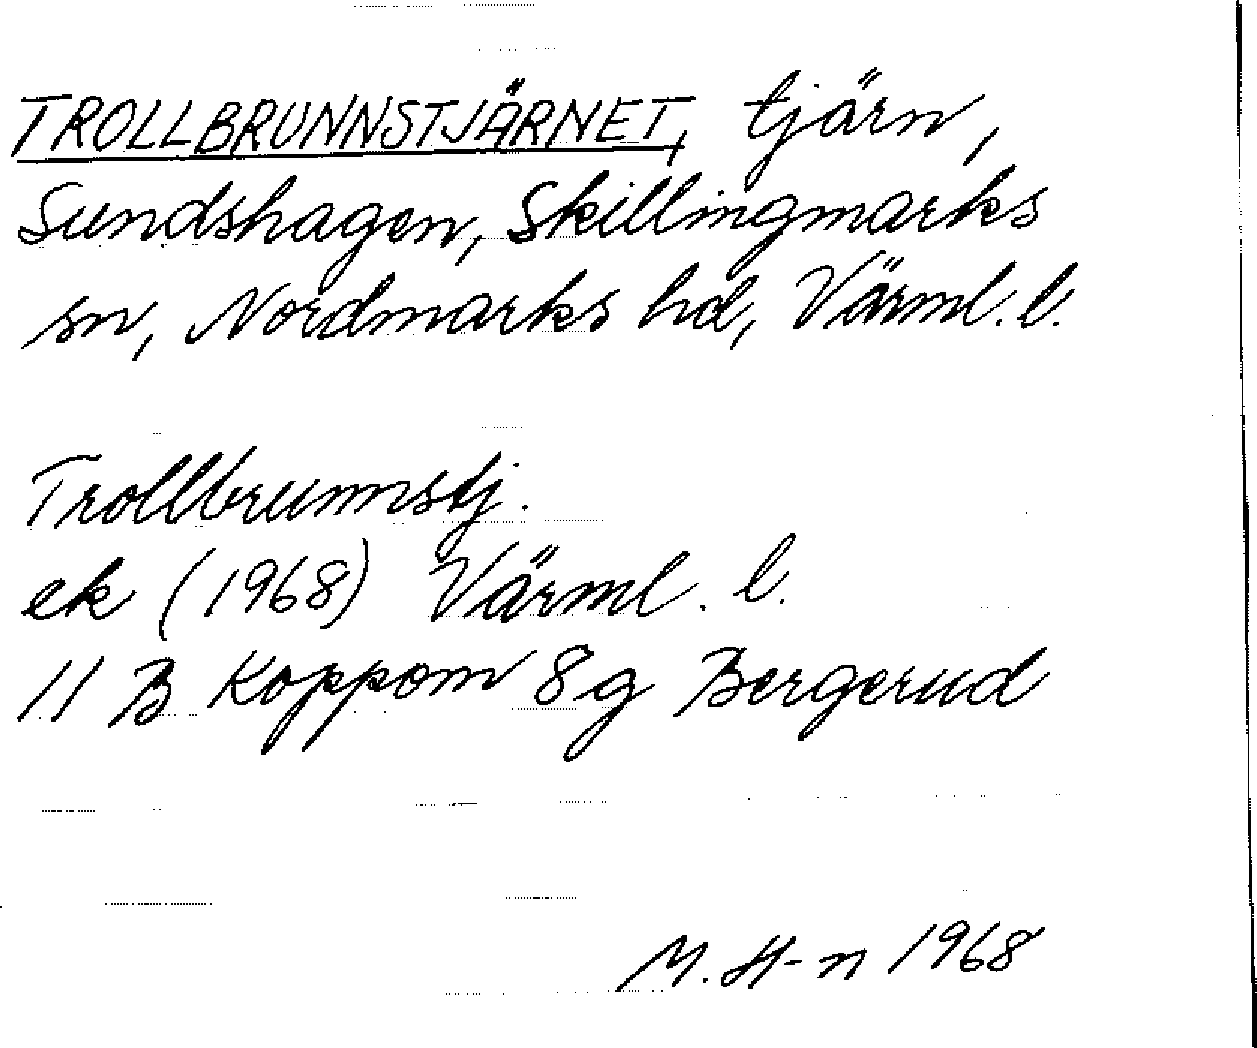 TROLLBRUNNSTJÄRNET, tjärn,
Sundshagen, Skillingmarks
sn, Nordmarks hd, Värml. l.
Trollbrunnstj.
ek (1968) Värml. l.
11 B Koppom 8g Bergerud
M. H-n 1968